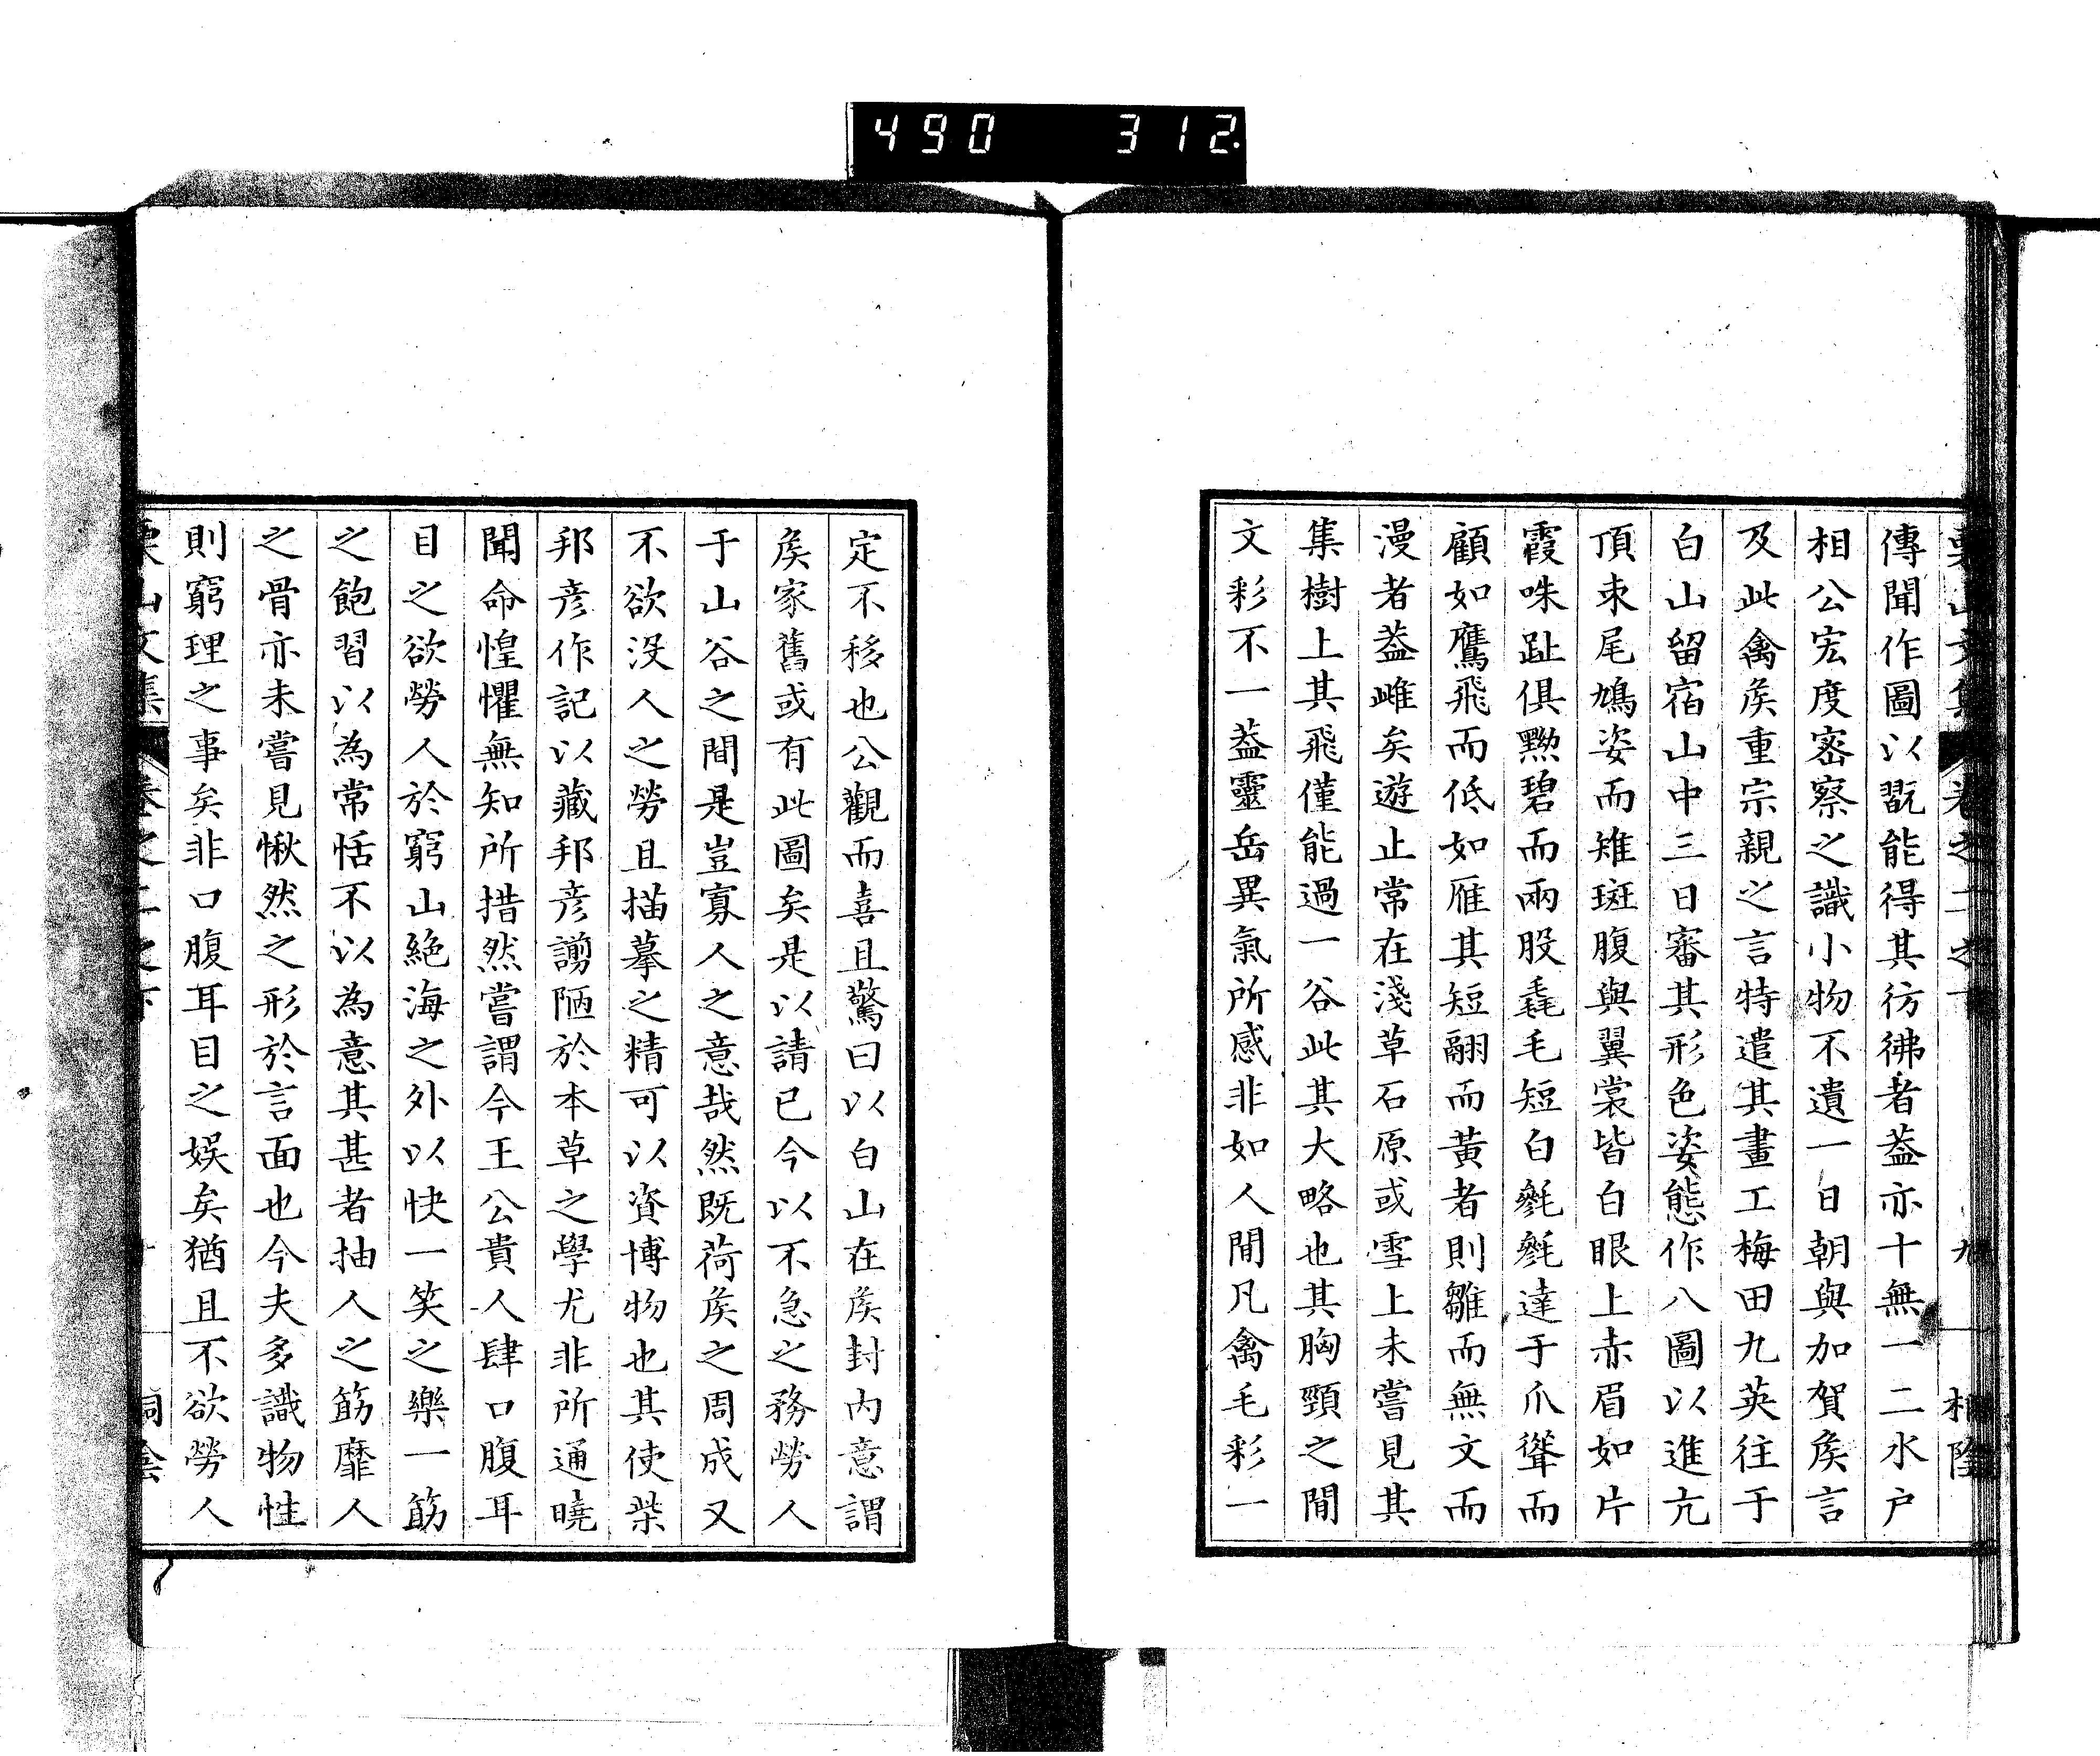 490 312
傳聞作圖以翫能得其彷彿者葢亦十無一二水戸
相公宏度密察之識小物不遺一日朝與加賀矦言
及此禽矦重宗親之言特遣其畫工梅田九英往于
白山留宿山中三日審其形色姿態作八圖以進亢
頂朿尾鳩姿而雉斑腹與翼裳皆白眼上赤眉如片
霞咮趾俱黝碧而兩股毳毛短白毿毿達于爪聳而
顧如鷹飛而低如雁其短翮而黃者則雛而無文而
漫者葢雌矣遊止常在淺草石原或雪上未嘗見其
集樹上其飛僅能過一谷此其大略也其胸頸之閒
文彩不一葢靈岳異氣所感非如人閒凡禽毛彩一
定不移也公觀而喜且驚曰以白山在矦封内意謂
矦家舊或有此圖矣是以請已今以不急之務勞人
于山谷之間是豈寡人之意哉然既荷矦之周成又
不欲没人之勞且描摹之精可以資博物也其使柴
邦彦作記以藏邦彦謭陋於本草之學尤非所通曉
聞命惶懼無知所措然嘗謂今王公貴人肆口腹耳
目之欲勞人於窮山絶海之外以快一笑之樂一筯
之飽習以為常恬不以為意其甚者抽人之筋靡人
之骨亦未嘗見愀然之形於言面也今夫多識物性
則窮理之事矣非口腹耳目之娯矣猶且不欲勞人